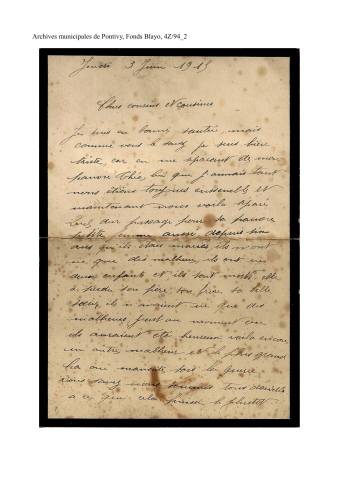 Archives municipales de Pontivy, Fonds Blayo, 4Z/94_2
Jeudi 3 Juin 1915
Chers cousins et cousines
Je suis en bonne santée mais
comme vous le savez je suis bien
triste, car on me séparent de mon
pauvre que j'amais tant
nous étions toujours enssemble et
maintenant nous voila séparé
dur passage pour sa pauvre
petite femme aussi depuis six
ans qu'ils étais mariés ils n'ont
eu que des malheur, ils ont eu
deux enfants et ils sont morts elle
a perdu son père, son frère sa belle
sœur, ils n'avaient eu que des
malheurs, juste au moment ou
ils auraient été heureux voila encore
un autre malheur et le plus grand
la guerre
nous tous
a ce que cela finisse le plustot